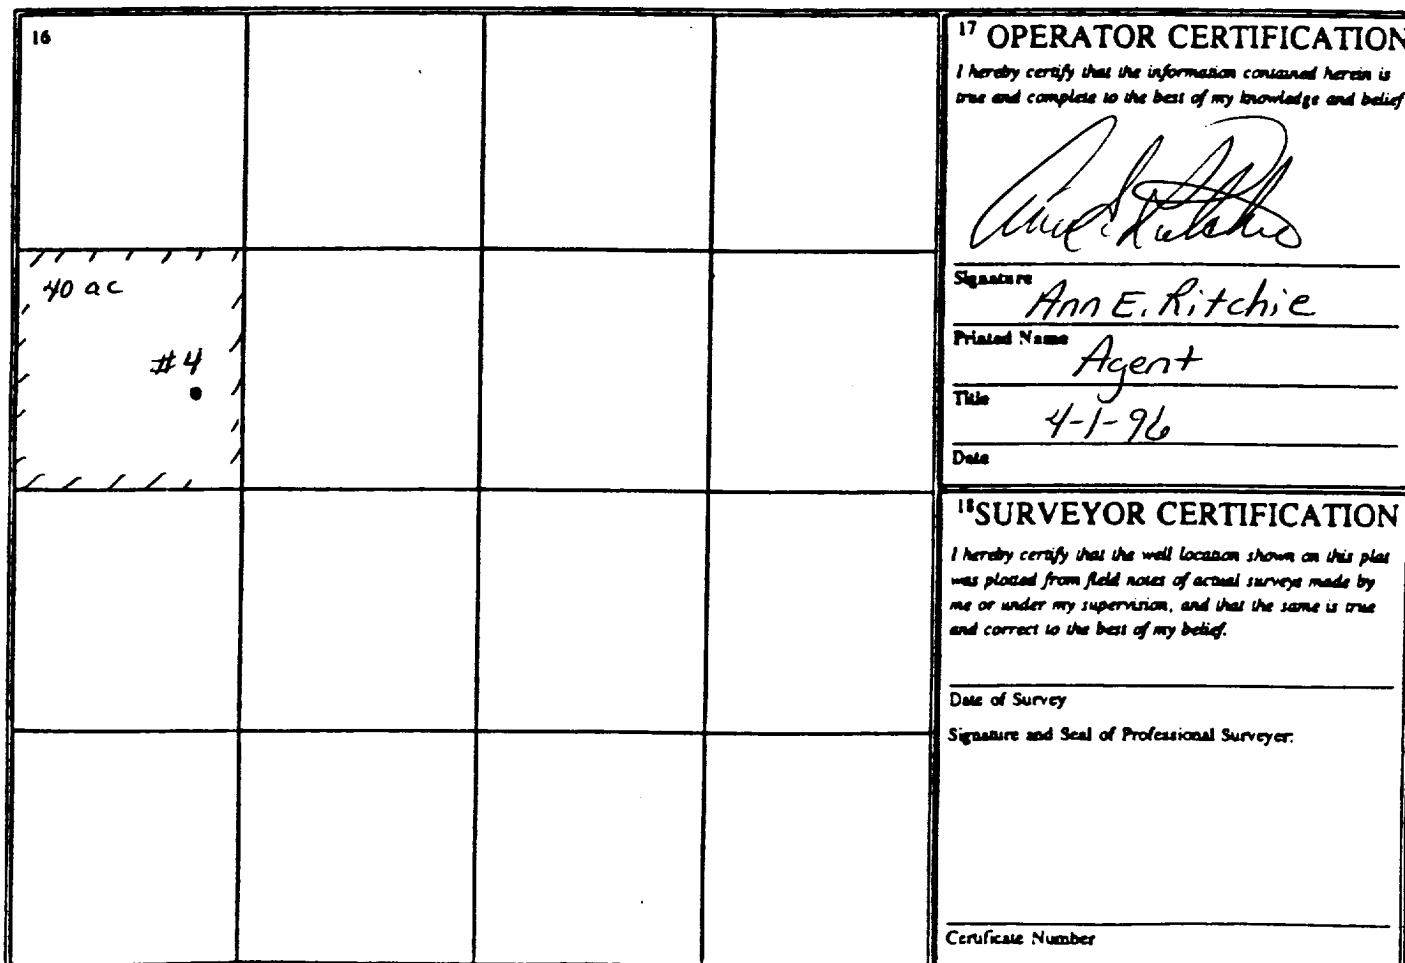 16
40 ac
#4
17 OPERATOR CERTIFICATION
I hereby certify that the information contained herein is
true and complete to the best of my knowledge and belief
Signature
Ann E. Ritchie
Printed Name
Agent
Title
4-1-96
Date
18 SURVEYOR CERTIFICATION
I hereby certify that the well location shown on this plat
was plotted from field notes of actual surveys made by
me or under my supervision, and that the same is true
and correct to the best of my belief.
Date of Survey
Signature and Seal of Professional Surveyer:
Certificate Number